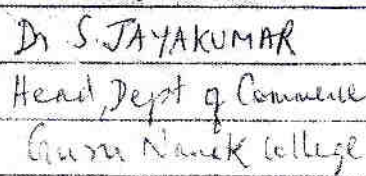 Dr S. JAYAKUMAR
Head, Dept of Commerce
Guru Nanak College